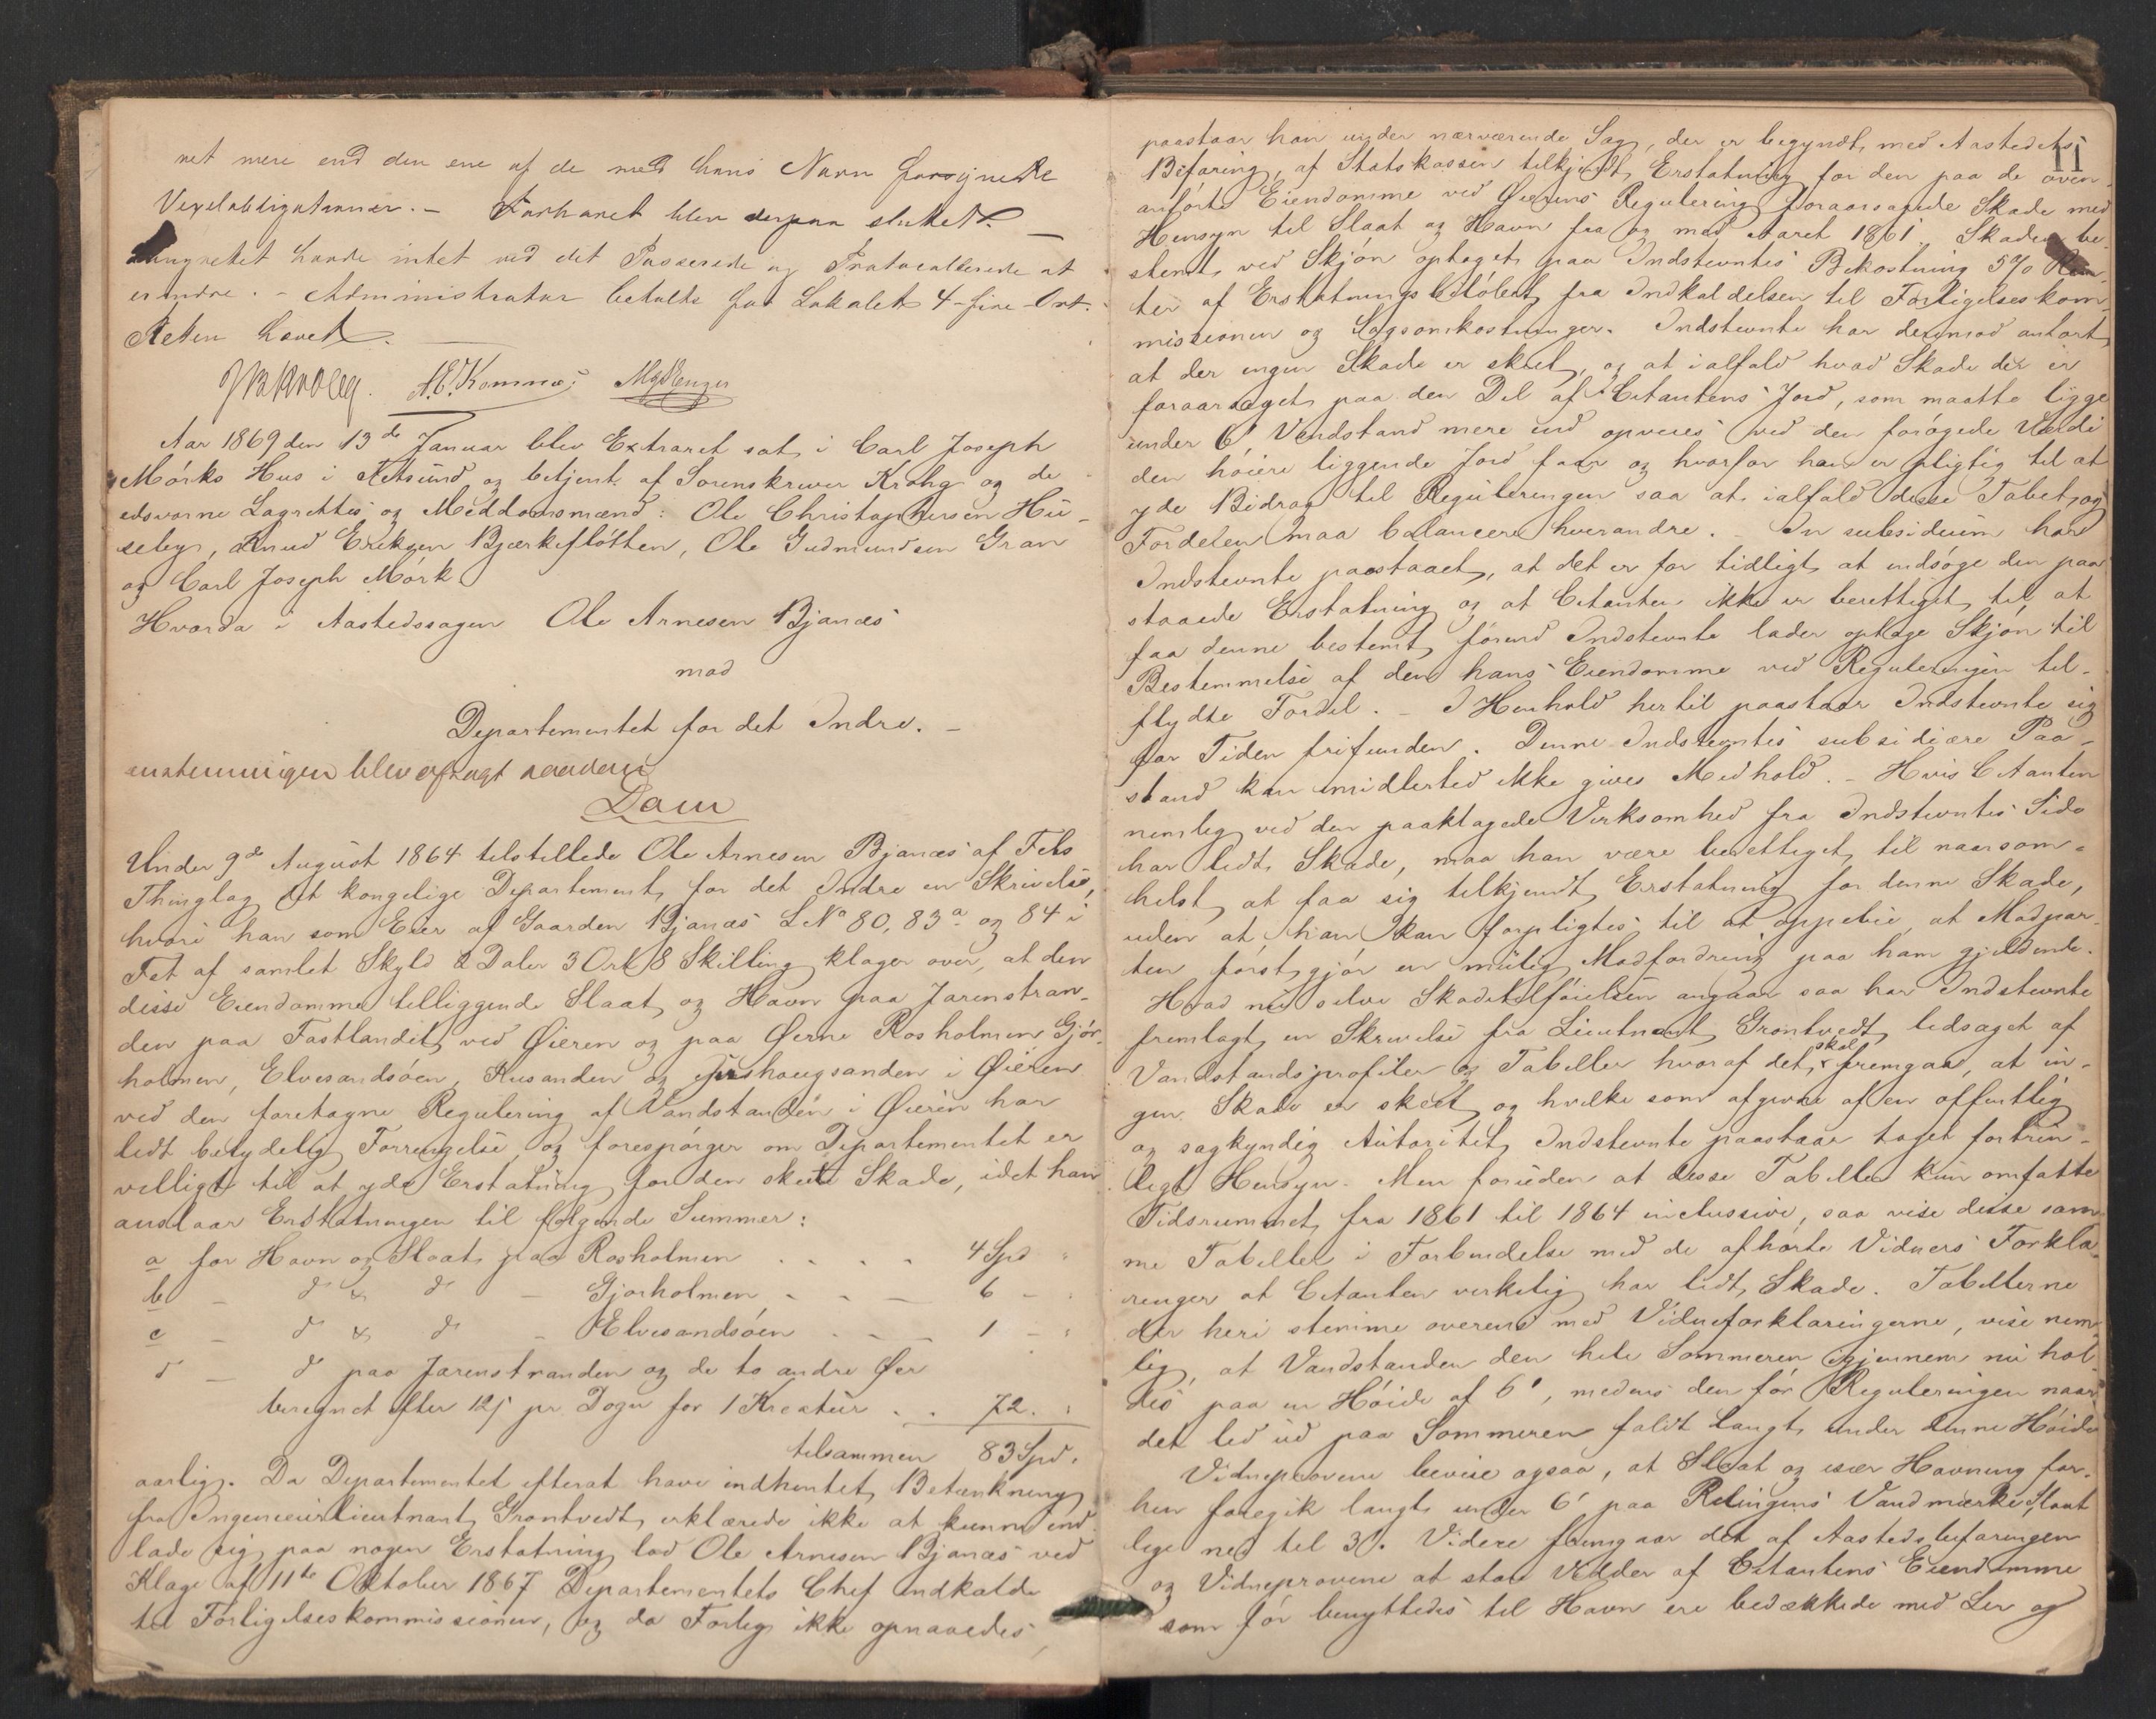 net mere end den ene af de med hans Navn forsynede
Vexelobligationer. – Forhøret blev derpaa sluttet. –
Laugrettet havde intet ved det Passerede og Protocollerede at
erindre. – Administrator betalte for Lokalet 4 – fire Ort.
Retten hævet.
Aar 1869 den 13de Januar blev Extraret sat i Carl Joseph
Mörks Hus i Fetsund og betjent af Sorenskriver Krohg og de
edsvorne Lagrettes og Meddomsmænd: Ole Christophersen Hu-
seby, Knud Eriksen Bjærkeflötten, Ole Gudmundsen Gran
og Carl Joseph Mörk
Hvorda i Aastedssagen Ole Arnesen Bjanæs
mod
Departementet for det Indre. –
blev afsagt saadan
Dom
Under 9de August 1864 tilstillede Ole Arnesen Bjanæs af Fets
Thinglag det kongelige Departement for det Indre en Skrivelse,
hvori han som Eier af Gaarden Bjanæs LNo 80, 83a og 84 i
Fet af samlet Skyld 2 Daler 3 Ort 8 Skilling klager over, at den
disse Eiendomme tilliggende Slaat og Havn paa Jarenstran-
den paa Fastlandet ved Øieren og paa Øerne Rosholmen Gjör-
holmen, Elvesandsöen, Kusanden og i Øieren
ved den foretagne Regulering af Vandstanden i Øieren har
lidt betydelig Forringelse, og forespörger om Departementet er
villigt til at yde Erstatning for den skete Skade, idet han
anslaar Erstatningen til følgende Summer:
a for Havn og Slaat paa Rosholmen . . . . 4 Spd
b – do & do – Gjorholmen . . – 6 – "
c – do & do – Elvesandsöen . . – 1 – "
d – d paa Jarenstranden og de to andre Øer
beregnet efter 12 s pr. Dogn for 1 Kreatur . . 72. "
tilsammen 83 Spd.
aarlig. Da Departementet efterat have indhentet Betænkning
fra Ingenieurlieutnant Grontvedt erklærede ikke at kunne ind-
lade sig paa nogen Erstatning lod Ole Arnesen Bjanæs ved
Klage af 11te Oktober 1867 Departementets Chef indkalde
til Forligelseskommissionen, og da Forlig ikke opnaaedes,
11
paastaar han under nærværende Sag, der er begyndt med Aastedets
Befaring, af Statskassen tilkjendt Erstatning for den paa de oven-
anførte Eiendomme ved Øierens Regulering foraarsagede Skade med
Hensyn til Slaat og Havn fra og med Aaret 1861. Skaden be-
stemt ved Skjön optaget paa Indstevntes Bekostning 5% Ren-
ter af Erstatningsbelöbet fra Indkaldelsen til Forligelseskom-
missionen og Sagsomkostninger. Indstevnte har derimod anført
at der ingen Skade er skeet, og at ialfald hvad Skade der er
foraarsaget paa den Del af Citantens Jord, som maatte ligge
under 6' Vandstand mere end opveies ved den forögede Værdi
den höiere liggende Jord faar og hvorfor han er pligtig til at
yde Bidrag til Reguleringen saa at ialfald disse Tabet, og
Fordelen maa balancere hverandre. – In subsidium har
Indstevnte paastaaet, at det er for tidligt at indsöge den paa-
staaede Erstatning og at Citanten ikke er berettiget til at
faa denne bestemt, förend Indstevnte lader optage Skjön til
Bestemmelse af den hans Eiendomme ved Reguleringen til-
flydte Fordel. – I Henhold hertil paastaar Indstevnte sig
for Tiden frifunden. Denne Indstevntes subsidiære Paa-
stand kan imidlertid ikke gives Medhold. – Hvis Citanten
nemlig ved den paaklagede Virksomhed fra Indstevntes Side
har lidt Skade, maa han være berettiget til naarsom-
helst at faa sig tilkjendt Erstatning for denne Skade,
uden at han kan forpligtes til at oppebie, at Modpar-
ten först gjör en mulig Modfordring paa ham gjeldende.
Hvad nu selve Skadetilföielsen angaar saa har Indstevnte
fremlagt en Skrivelse fra Lieutnant Grontvedt ledsaget af
Vandstandsprofiler og Tabeller hvoraf det skal fremgaa, at in-
gen Skade er skeet og hvilke som afgivne af en offentlig
og sagkyndig Autoritet Indstevnte paastaar taget fortrin-
ligt Hensyn. Men foruden at disse Tabeller kun omfatte
Tidsrummet fra 1861 til 1864 inclusive, saa vise disse sam-
me Tabeller i Forbindelse med de afhörte Vidners Forkla-
ringer at Citanten virkelig har lidt Skade. Tabellerne
der heri stemme overens med Vidneforklaringerne, vise nem-
lig, at Vandstanden den hele Sommeren igjennem nu hol-
des paa en Höide af 6', medens den för Reguleringen naar
det led ud paa Sommeren faldt langt under denne Höide
Vidneprovene bevise ogsaa, at Slaat og især Havning for-
hen foregik langt under 6' paa Rælingens Vandmærke, Slaat
lige ned til 3'. Videre fremgaar det af Aastedsbefaringen
og Vidneprovene at store Vidder af Citantens Eiendomme
som för benyttedes til Havn ere bedækkede med Ler og